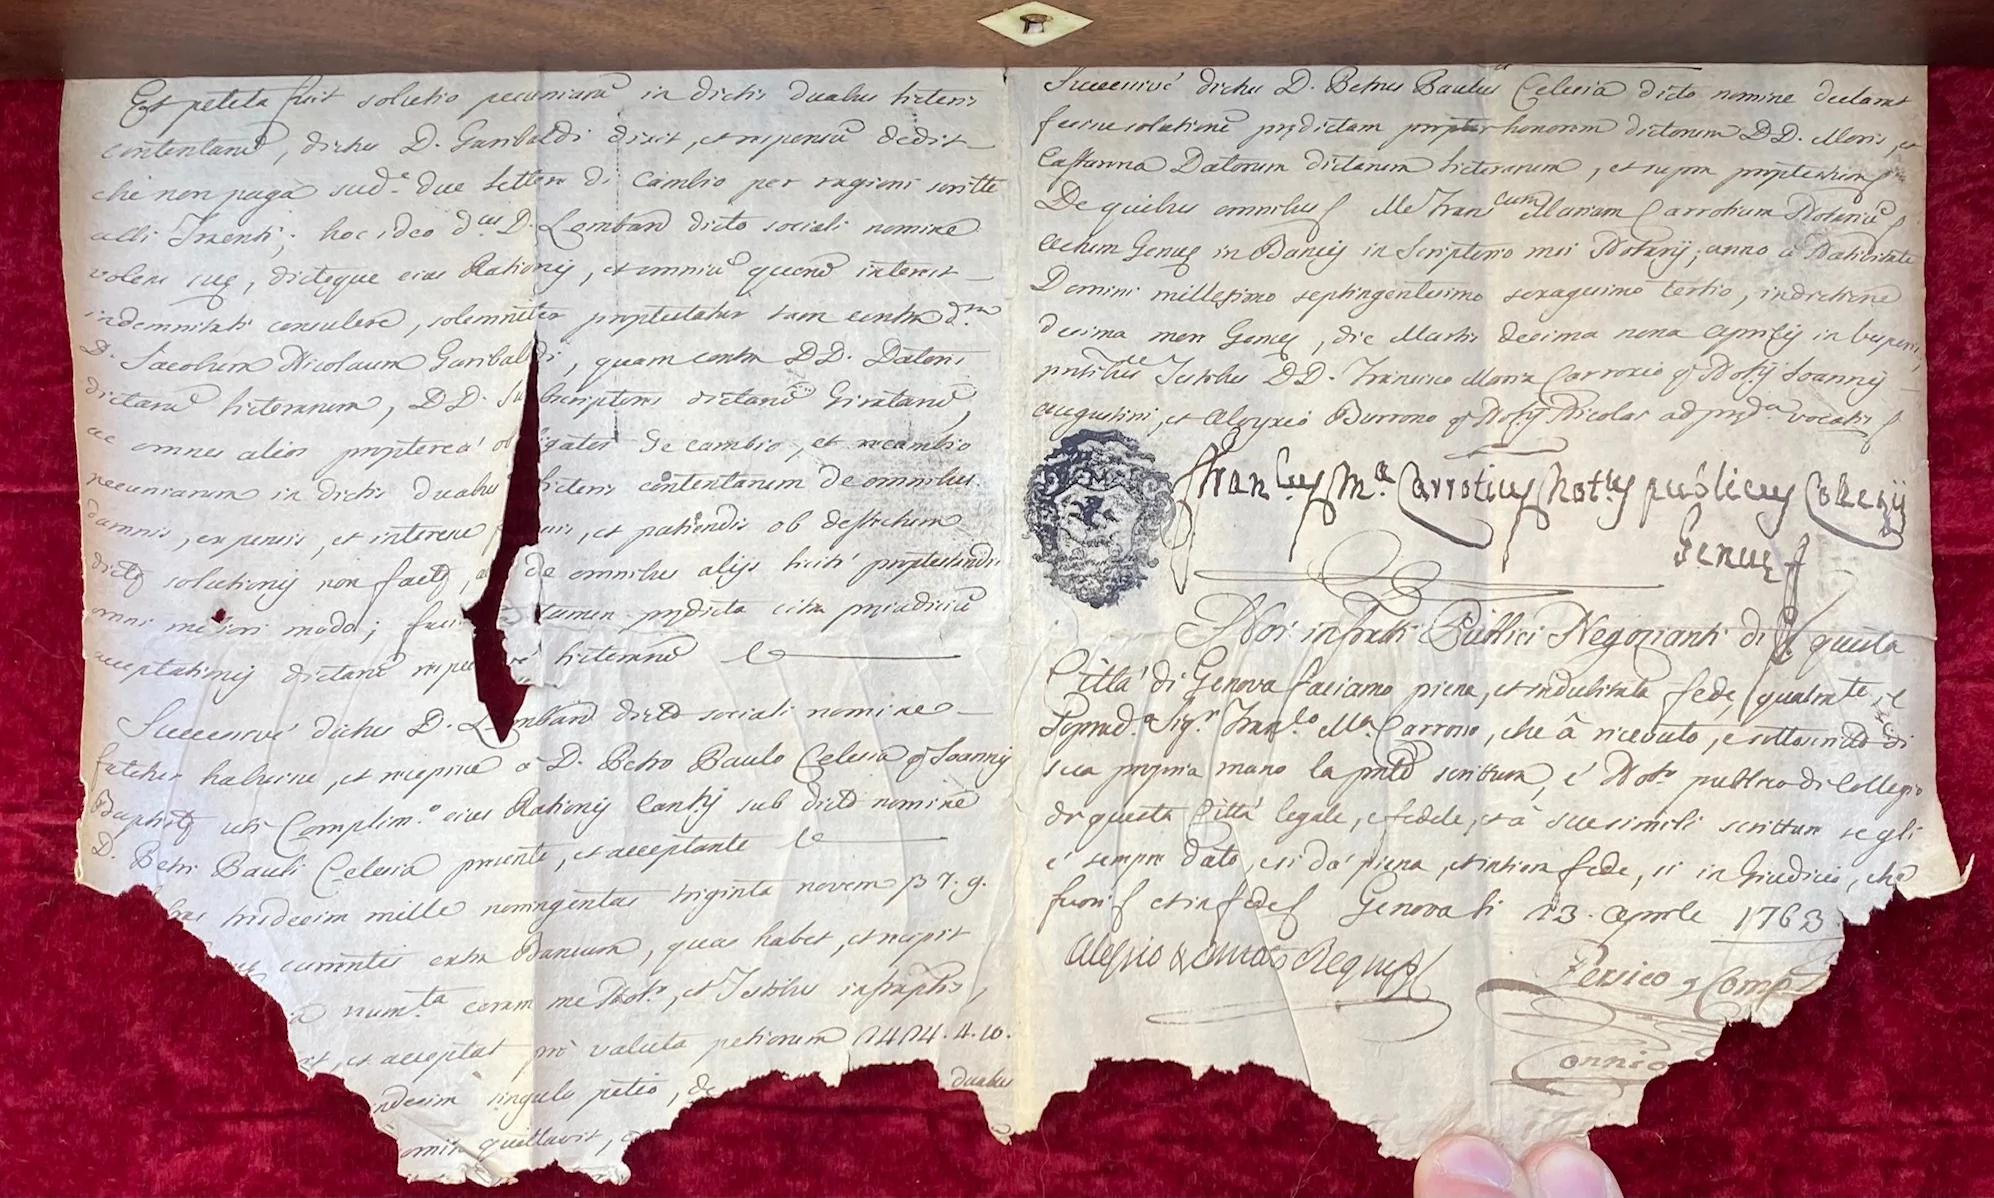 Et petita fuit solutio pecuniarũ in dictis duabus litteris
contentarũ, dictus D. Garibaldi dixit, et responsũ dedit
che non paga sud.e due lettere di Cambio per ragioni scritte
alli Traenti; hoc ideo d.us D. Lombard dicto sociali nomine
volens suę, dictęque eius Rationis, et omniũ quorũ interest
indemnitati consulere, solemniter proptestatur tam contra d.um
D. Jacobum Nicolaum Garibaldi, quam contra DD. Datores
dictarũ litterarum, DD. Su bscriptores dictarũ Giratarũ,
ac omnes alios propterea ob igatos de cambio, et recambio
pecuniarum in dictis duabus litteris contentarum de omnibus
damnis, expensis, et interesse is, et patiendis ob deffectum
dictę solutionis non factę, de omnibus alijs liciti proptestandi
omni meliori modo; tamen prędicta citra prejudiciũ
acceptationis dictarũ respe vè litterarũ
Successivè dictus D. Lombard dicto sociali nomine
fatetur habuisse, et recepisse à D. Petro Paulo Celesia q Joannis
Baptistę uti Complim.o eius Rationis Cantis sub dicto nomine
D. Petri Pauli Celesia presente, et acceptante
bras tredecim mille noningentas triginta novem ß 7. 9.
currentis extra Bancum, quas habet, et recepit
a num.ta coram me Not.o, et Testibus infraptis,
et acceptat prò valuta petiorum 1414. 4. 10.
ndecim singulo petio, de duabus
omin quittavit,
Successivè dictus D. Petrus Paulus Celesia dicto nomine declarat
fecisse solutionẽ prędictam propter honorem dictorum DD. Moris, et
Castanna Datorum dictarum litterarum, et supra proptestation
De quibus omnibus Me Franciscum Mariam Carrotium Notariũ
Actum Genuę in Bancis in Scriptorio mei Notarij; anno à Nativitate
Domini millesimo septingentesimo sexagesimo tertio, indictione
decima more Genuę, die Martis decima nona Aprilis in Vesperis,
pntibus Testibus DD. Francisco Maria Carrozio q Not.ij Joannis
Augustini, et Aloysio Burrone q Not.ij Nicolai ad pręd.a vocatis
Fran.cus M.a Carrotius Not.us publicus Colegij
Genuę
Noi infratti Publici Negozianti di questa
Città di Genova facciamo piena, et indubitata fede, qualmente il
soprad.o Sig.r Fran.co M.a Carrozio, che à ricevuto, e sottoscritto di
sua propria mano la pnte scrittura, è Not.o publico di Collegio
di questa Città legale, e fedele, et à sue simili scritture se gli
è sempre dato, e si dà piena, et intiera fede, si in Giudicio, che
fuori et in fede Genova li 23. Aprile 1763
Alessio & Amato Regny
Persico q Comp.
Connio